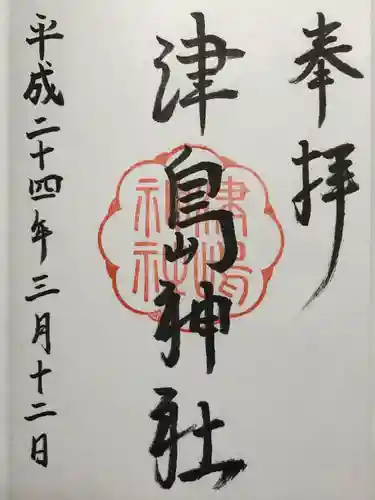 奉拝
津島神社
津嶋神社
平成二十四年三月十二日